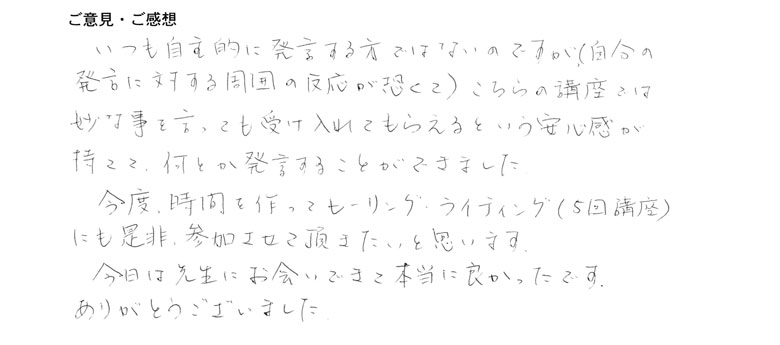 ご意見・ご感想
いつも自主的に発言する方ではないのですが、(自分の
発言に対する周囲の反応が恐くて) こちらの講座では
妙な事を言っても受け入れてもらえるという安心感が
持てて、何とか発言することができました
今度、時間を作ってヒーリング・ライティング (5回講座)
にも是非、参加させて頂きたいと思います。
今日は先生にお会いできて本当に良かったです。
ありがとうございました